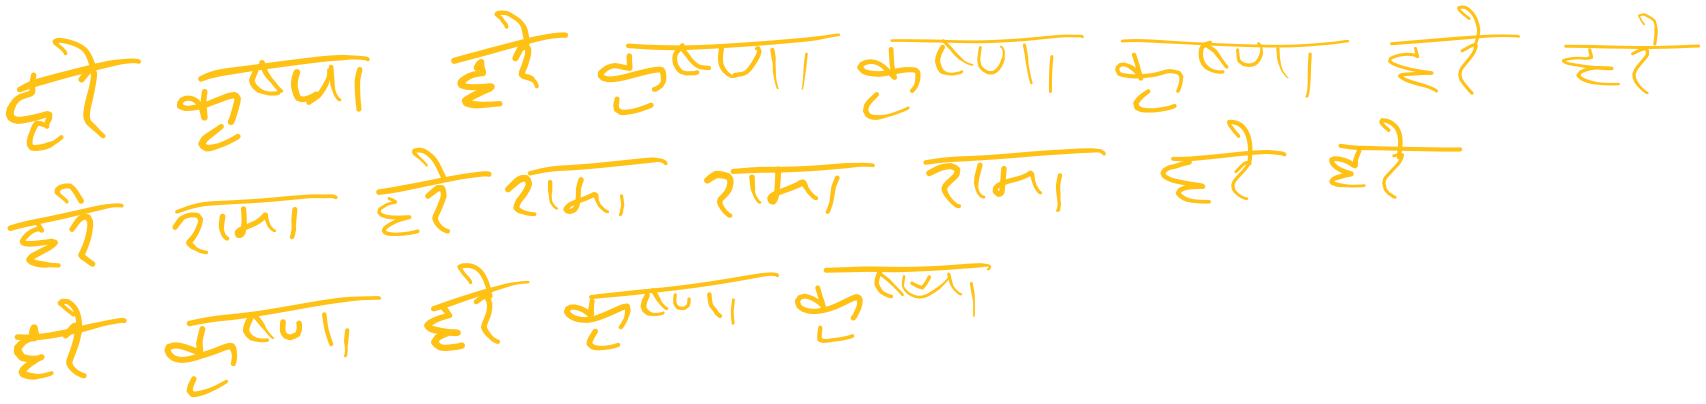 हरे कृष्णा हरे कृष्णा कृष्णा कृष्णा हरे हरे
हरे रामा हरे रामा रामा रामा हरे हरे
हरे कृष्णा हरे कृष्णा कृष्णा